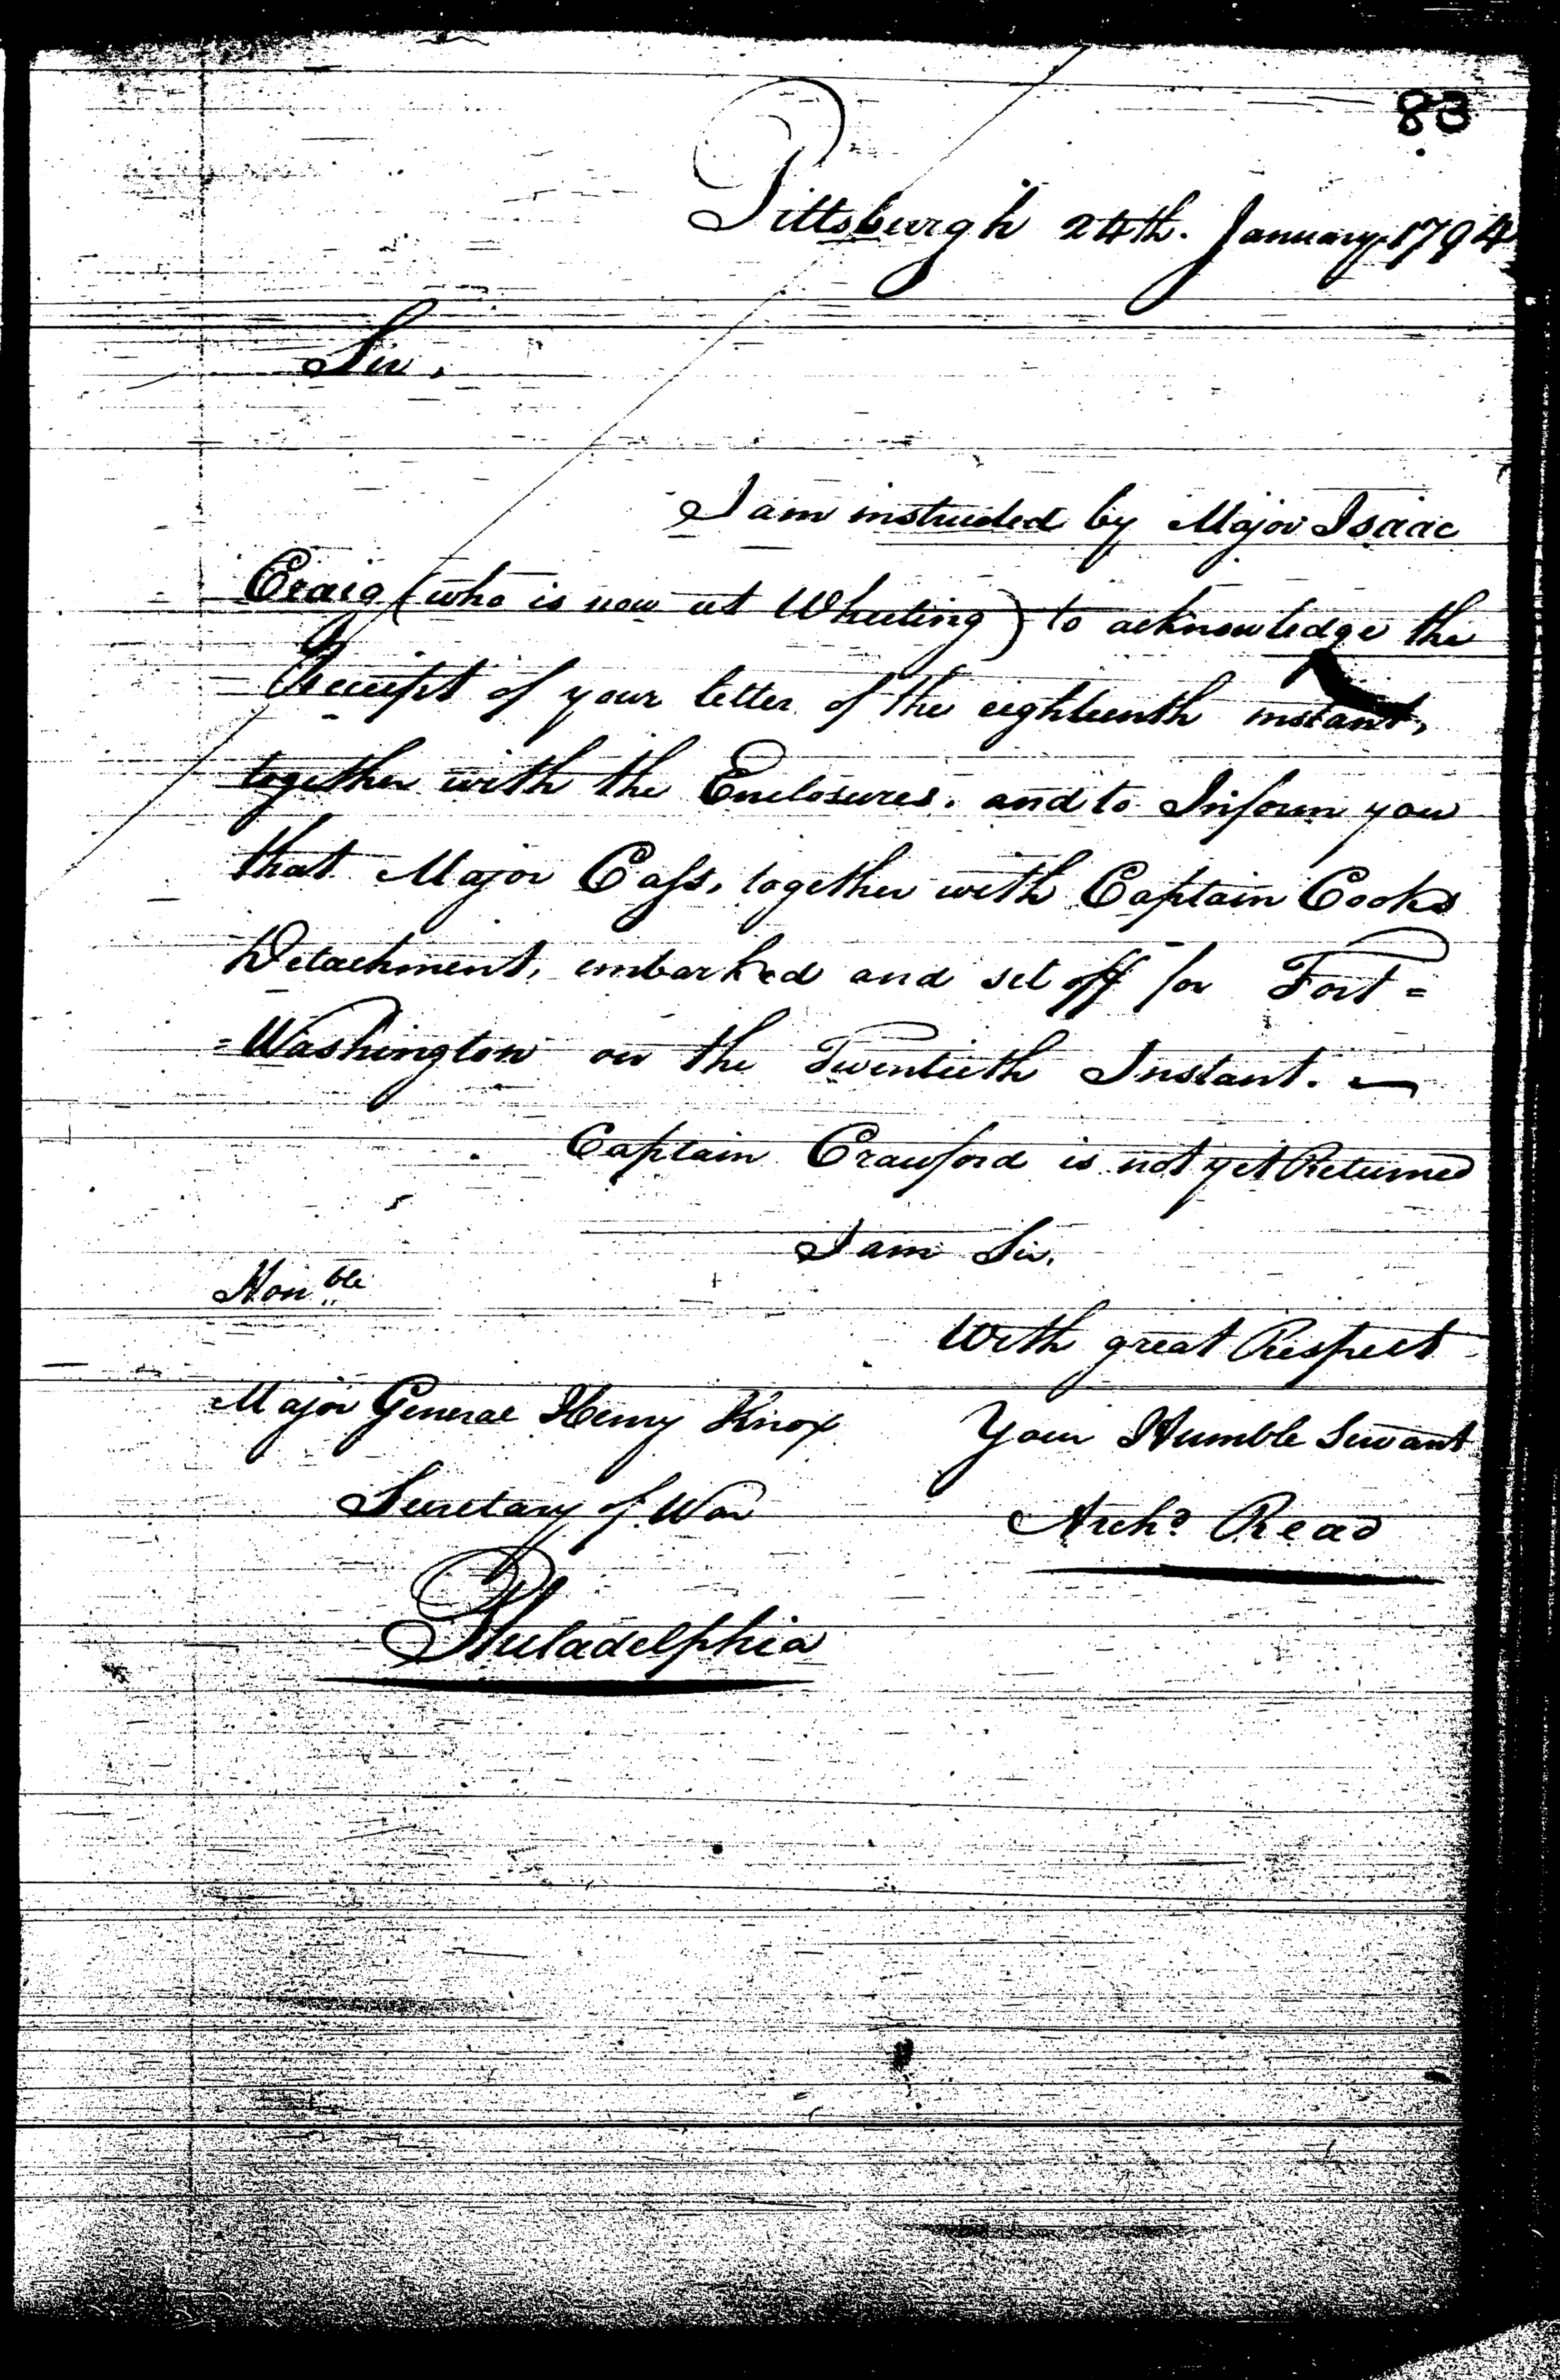 83
Pittsburgh 24th. January 1794
Sir,
I am instructed by Major Isaac
Craig (who is now at Wheeling) to acknowledge the
Receipt of your letter of the eighteenth instant,
together with the Enclosures. and to Inform you
that Major Cass, together with Captain Cooks
Detachment, embarked and set off for Fort =
= Washington on the Twentieth Instant. —
Captain Crawford is not yet Returned
I am Sir,
Honble
With great Respect
Major General Henry Knox
Your Humble Servant
Secretary of War
Archd Read
Philadelphia